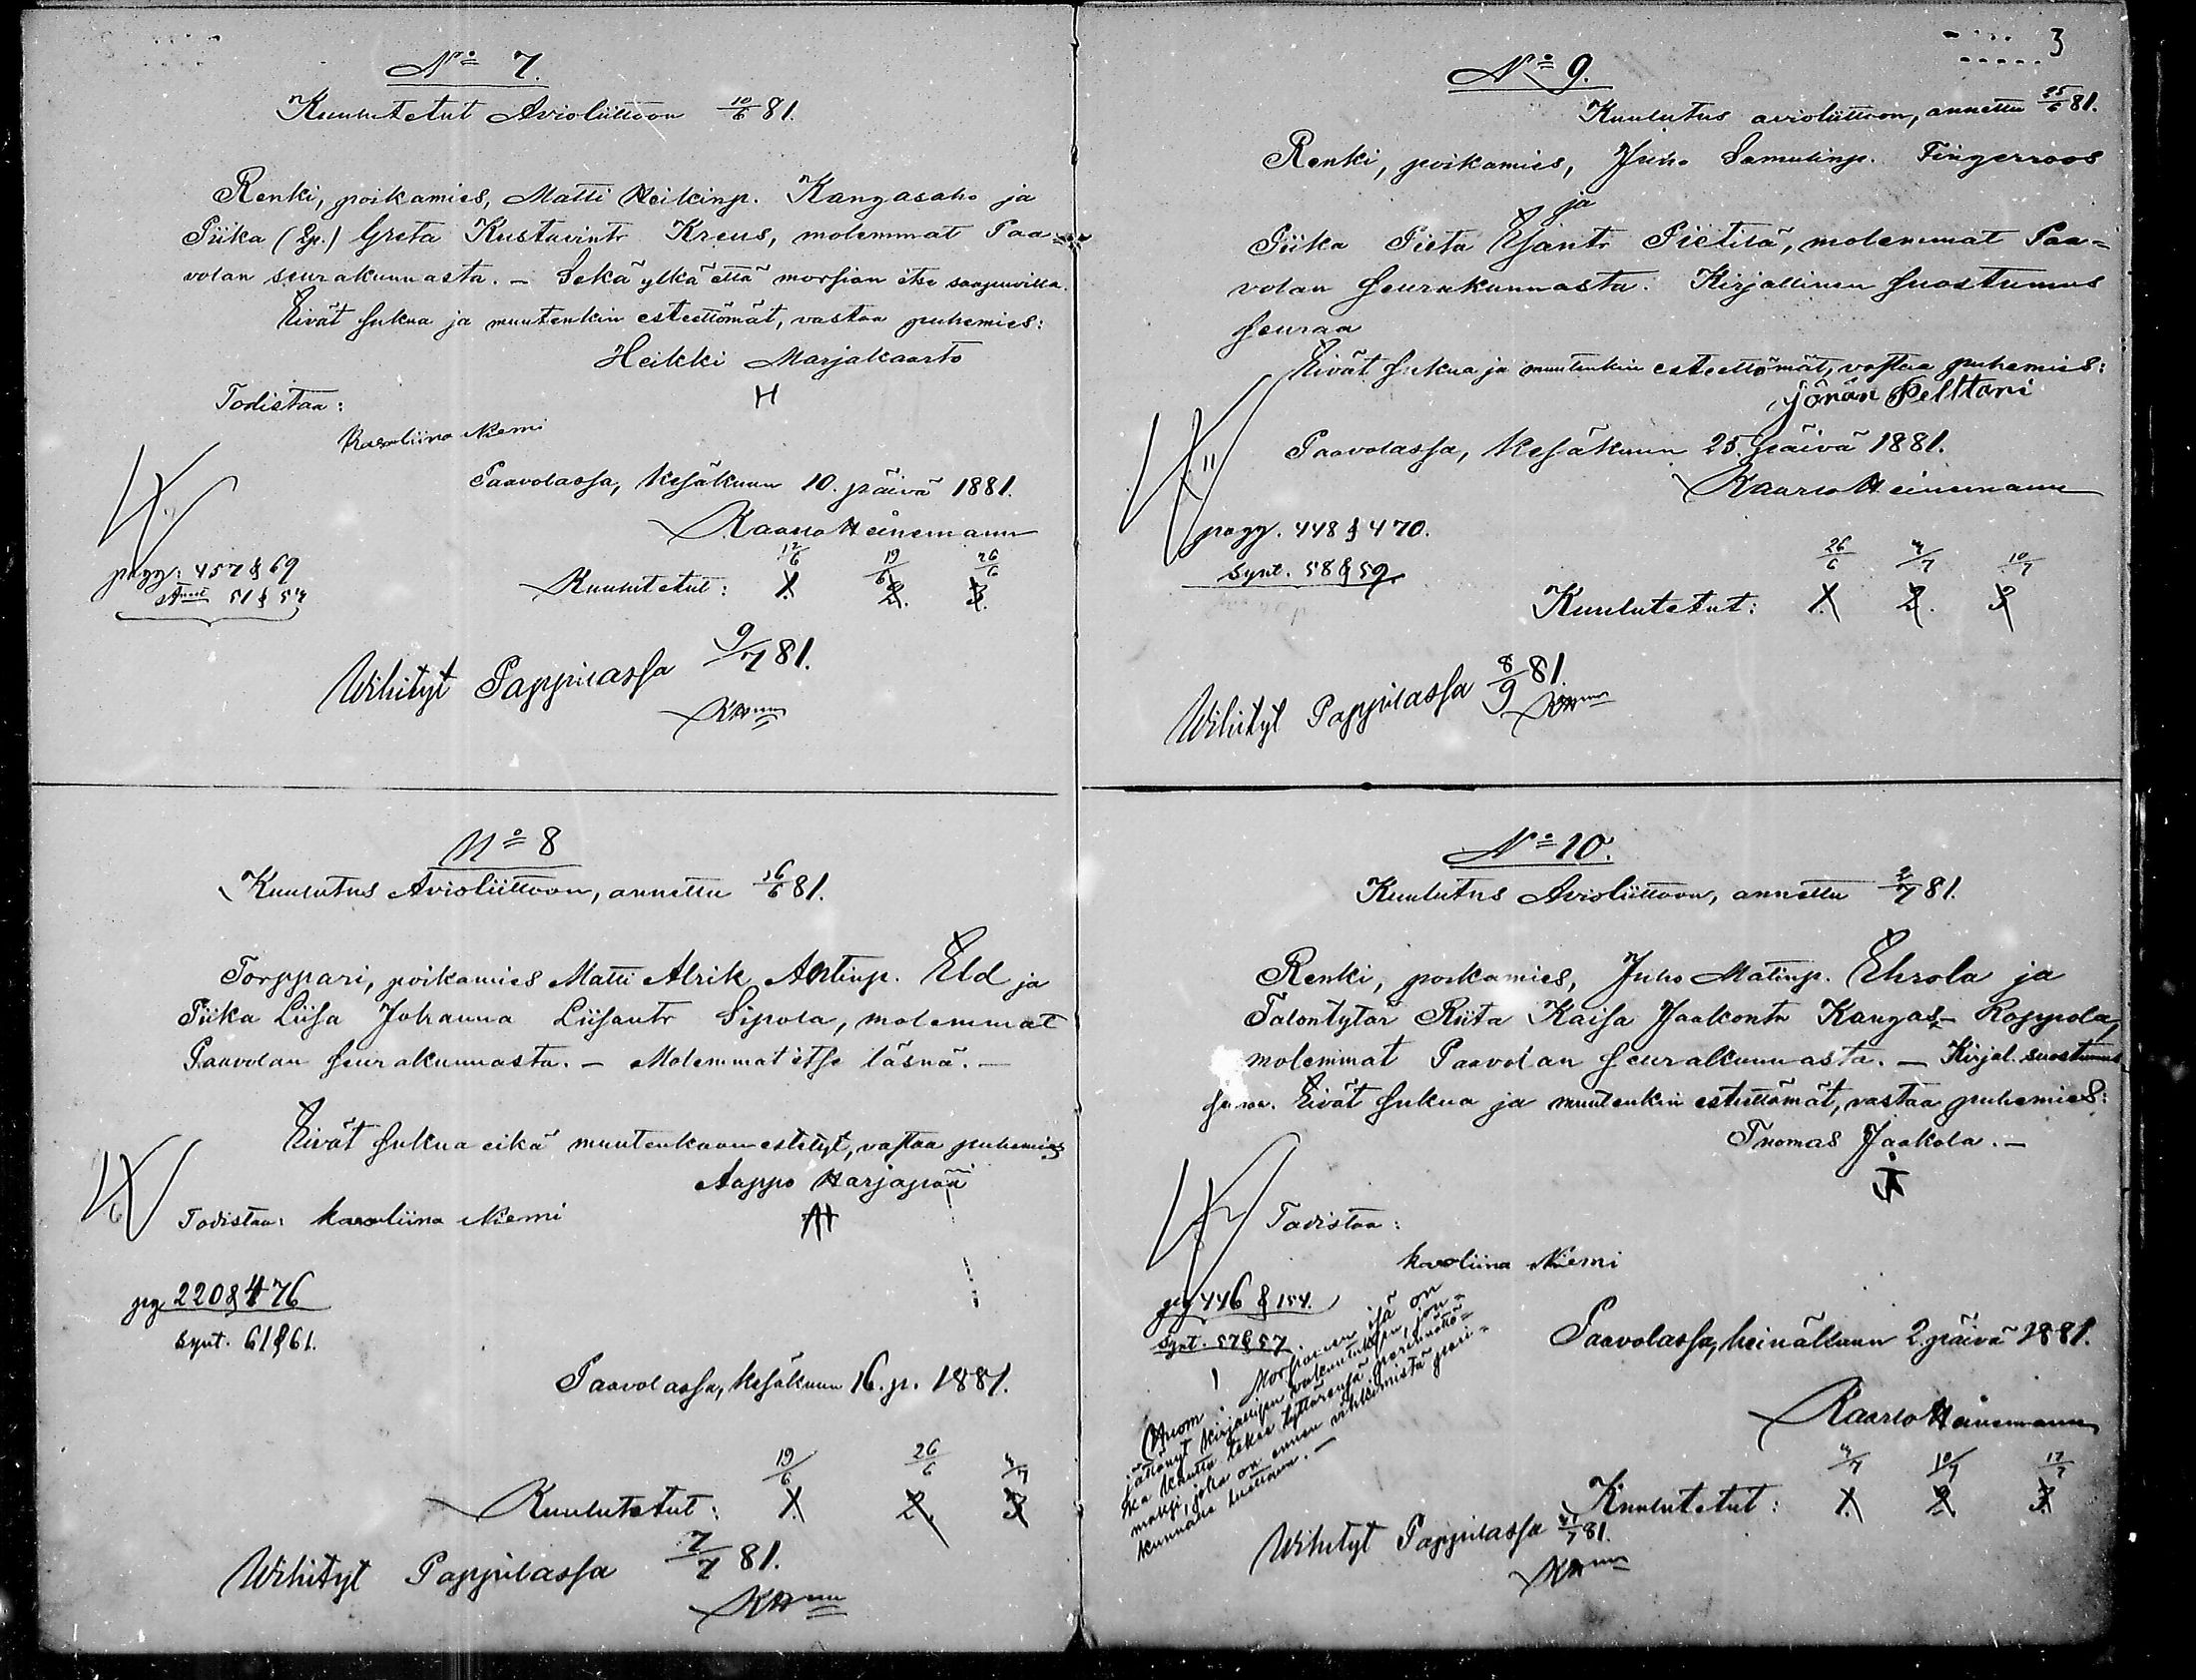 No 7.
Kuulutetut Avioliittoon 10/6 81.
Renki, poikamies, Matti Heikinp. Kangasaho ja
Piika (Ip.) Greta Kustavintr Kreus, molemmat Paa-
volan seurakunnasta. – Sekä ylkä että morsian itse saapuvilla.
Eivät sukua ja muutenkin esteettömät, vastaa puhemies:
Heikki Marjakaarto
H
Todistaa:
Karoliina Niemi
Paavolassa, Kesäkuun 10. päivä 1881.
Kaarlo Heinemann
pagg: 457 & 69
51 & 54
12/6 19/6 26/6
Kuulutetut: 1. 2. 3.
Wihityt Pappilassa 9/7 81.
KHnn
No 8
Kuulutus Avioliittoon, annettu 16/6 81.
Torppari, poikamies Matti Alrik Antinp. Eld ja
Piika Liisa Johanna Liisantr Sipola, molemmat
Paavolan seurakunnasta. – Molemmat itse läsnä. –
Eivät sukua eikä muutenkaan estetyt, vastaa puhemies
Aappo Harjapää
AH
Todistaa: Karoliina Niemi
pg 220 & 476
synt. 61 & 61.
Paavolassa, kesäkuun 16. p. 1881.
19/6 26/6 3/7
Kuulutetut: 1. 2. 3
Wihityt Pappilassa 7/7 81.
KHnn
3
No 9.
Kuulutus avioliittoon, annettu 25/6 81.
Renki, poikamies, Juho Samulinp. Fingerroos
ja
Piika Pieta Esantr Pietilä, molemmat Paa-
volan seurakunnasta. Kirjallinen suostumus
seuraa
Eivät sukua ja muutenkin esteettömät, vastaa puhemies:
Jönän Pelttari
Paavolassa, Kesäkuun 25. päivä 1881.
Kaarlo Heinemann
pagg. 448 & 470.
synt. 58 & 59.
26/6 3/7 10/7
Kuulutetut: 1. 2. 3
Wihityt Pappilassa 8/9 81.
KHnn
No 10.
Kuulutus Avioliittoon, annettu 2/7 81.
Renki, poikamies, Juho Matinp. Ehrola ja
Talontytär Riita Kaisa Jaakontr Kangas-Roppola,
molemmat Paavolan seurakunnasta. – Kirjal. suostumus
seuraa. Eivät sukua ja muutenkin esteettömät, vastaa puhemies:
Tuomas Jaakola. –
Todistaa:
Karoliina Niemi
pg 446 & 154.
synt. 57 & 57
Huom: Morsiamen isä on
jättänyt kirjallisen vakuutuksen, jon-
ka kautta tekee tyttärensä perinnöttö-
mäksi, joka on ennen vihkimistä peri-
kunnalle luettava. –
Paavolassa, heinäkuun 2. päivä 1881.
Kaarlo Heinemann
3/7 10/7 17/7
Kuulutetut: 1. 2. 3.
Wihityt Pappilassa 21/7 81.
KHnn